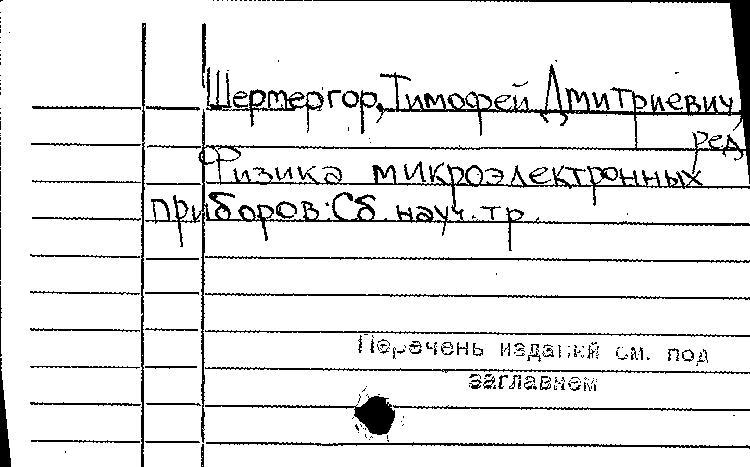 Шермергор, Тимофей Дмитриевич,
ред.
Физика микроэлектронных
приборов: Сб. науч. тр.
Перечень изданий см. под
заглавием